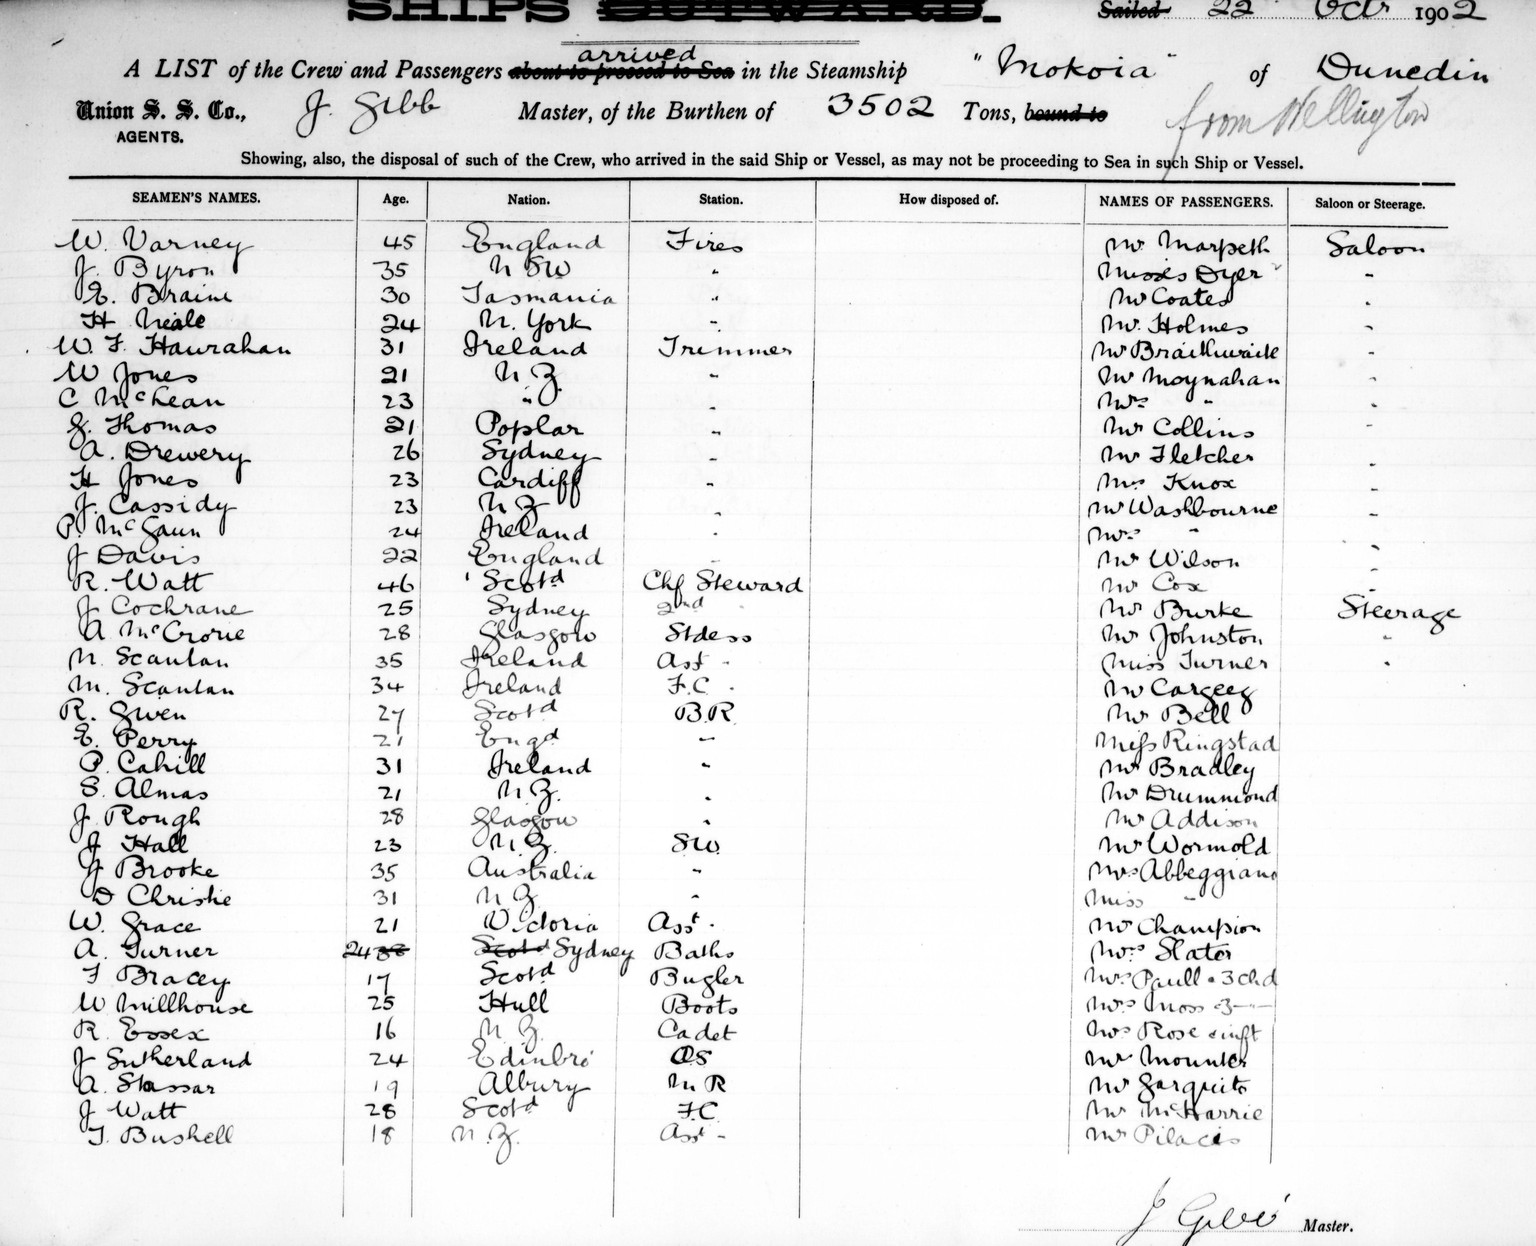 SHIPS OUTWARD.
Sailed 22 Octr 1902
arrived
A LIST of the Crew and Passengers about to proceed to Sea in the Steamship "Mokoia" of Dunedin
Union S. S. Co., J. Gibb Master, of the Burthen of 3502 Tons, bound to from Wellington
AGENTS.
Showing, also, the disposal of such of the Crew, who arrived in the said Ship or Vessel, as may not be proceeding to Sea in such Ship or Vessel.
SEAMEN'S NAMES. Age. Nation. Station. How disposed of. NAMES OF PASSENGERS. Saloon or Steerage.
W. Varney 45 England Fires Mr Marpeth Saloon
J. Byron 35 N SW " Misses Dyer "
E. Braine 30 Tasmania " Mr Coates "
H Neale 24 N. York " Mr. Holmes "
W. F. Hanrahan 31 Ireland Trimmer Mr Braithwaite "
W Jones 21 N. Z. " Mr Moynahan "
C McLean 23 " " Mrs " "
G. Thomas 21 Poplar " Mr Collins "
A. Drewery 26 Sydney " Mr Fletcher "
H Jones 23 Cardiff " Mrs Knox "
J. Cassidy 23 N Z " Mr Washbourne "
P. McGaun 24 Ireland " Mrs " "
J Davis 22 England " Mr Wilson "
R. Watt 46 Scotd Chf Steward Mr Cox "
J Cochrane 25 Sydney 2nd " Mr Burke Steerage
A McCrorie 28 Glasgow Stdess Mr Johnston "
N. Scanlan 35 Ireland Asst " Miss Turner "
M. Scanlan 34 Ireland F.C. Mr Cargeeg
R. Gwen 27 Scotd B.R. Mr Bell
E. Perry 21 Engd " Miss Ringstad
P. Cahill 31 Ireland " Mr Bradley
S. Almas 21 N. Z. " Mr Drummond
J. Rough 28 Glasgow " Mr Addison
J Hall 23 N. Z. SW. Mr Wormold
J Brooke 35 Australia " Mrs Abbeggiano
D Christie 31 N Z " Miss "
W. Grace 21 Victoria Asst. Mr Champion
A. Turner 24 38 Scotd Sydney Baths Mrs Slater
F Bracey 17 Scotd Bugler Mrs Paull & 3 chd
W Millhouse 25 Hull Boots Mrs Moss & 3 "
R. Essex 16 N. Z. Cadet Mrs Rose & inft
J Sutherland 24 Edinbro' OS Mr Mounter
A. Stassar 19 Albury M R Mr Garquito
J Watt 28 Scotd F.C. Mr McHarrie
T. Bushell 18 N. Z. Asst " Mr Pilacis
J Gibb Master.